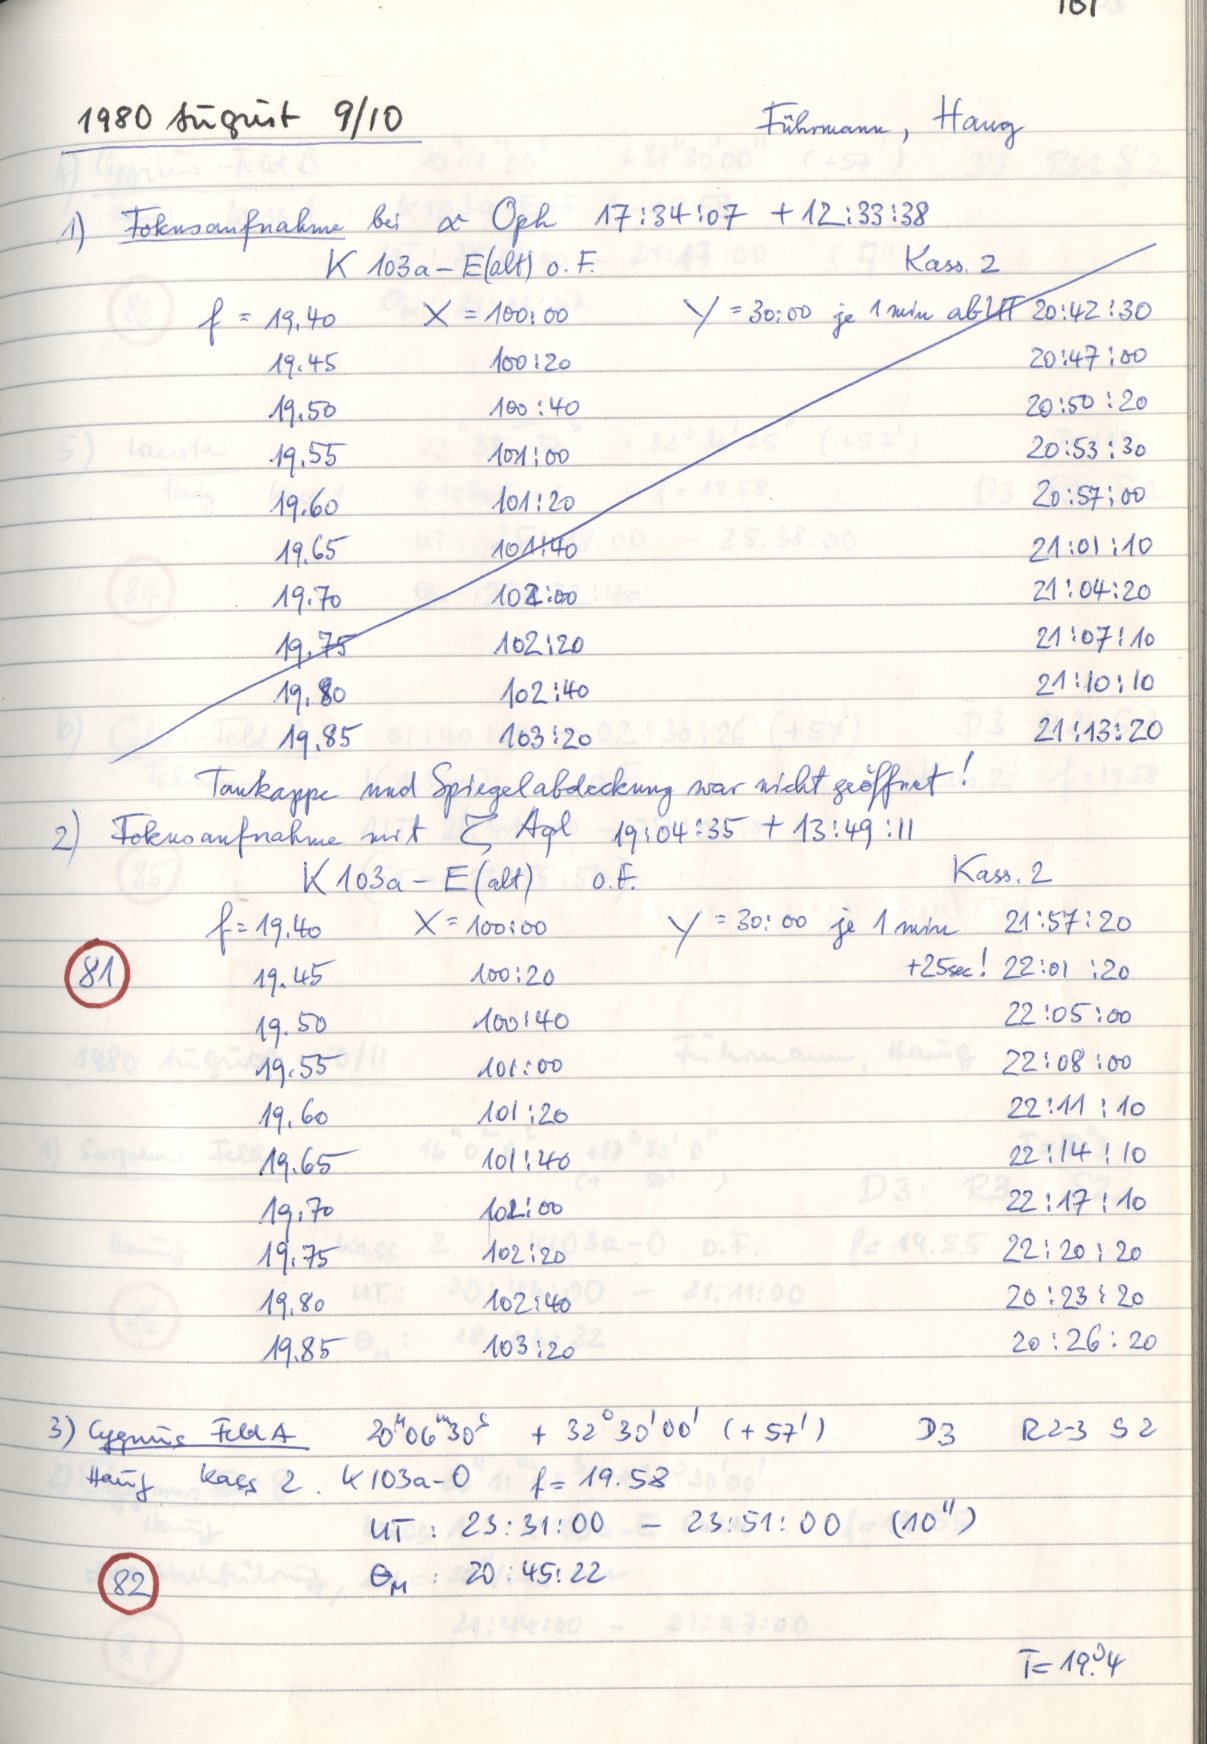 1980 August 9/10 Fuhrmann, Haug
1) Fokusaufnahme bei α Oph 17:34:07 + 12:33:38
K 103a-E(alt) o.F. Kass. 2
f = 19.40 X = 100:00 Y = 30:00 je 1 min ab UT 20:42:30
19.45 100:20 20:47:00
19.50 100:40 20:50:20
19.55 101:00 20:53:30
19.60 101:20 20:57:00
19.65 101:40 21:01:10
19.70 102:00 21:04:20
19.75 102:20 21:07:10
19.80 102:40 21:10:10
19.85 103:20 21:13:20
Taukappe und Spiegelabdeckung war nicht geöffnet!
2) Fokusaufnahme mit ζ Aql 19:04:35 + 13:49:11
K 103a-E(alt) o.F. Kass. 2
f = 19.40 X = 100:00 Y = 30:00 je 1 min 21:57:20
81 19.45 100:20 +25sec! 22:01:20
19.50 100:40 22:05:00
19.55 101:00 22:08:00
19.60 101:20 22:11:10
19.65 101:40 22:14:10
19.70 102:00 22:17:10
19.75 102:20 22:20:20
19.80 102:40 20:23:20
19.85 103:20 20:26:20
3) Cygnus Feld A 20ʰ06ᵐ30ˢ + 32°30'00' (+57') D3 R2-3 S2
Haug Kass 2. K103a-O f = 19.58
UT: 23:31:00 - 23:51:00 (10")
82 θM : 20:45:22
T = 19.°4